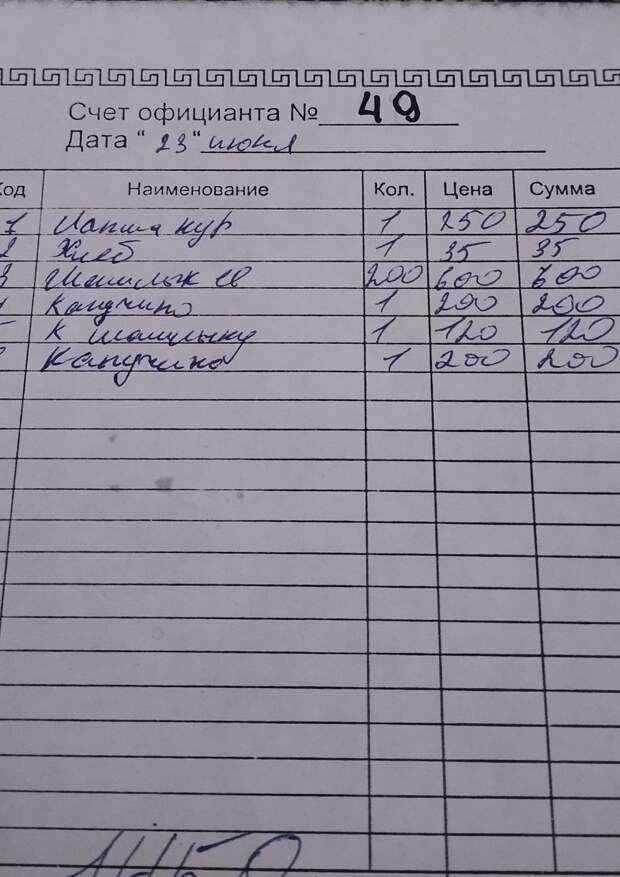 Счет официанта № 49
Дата “ 23 “ июня
Код Наименование Кол. Цена Сумма
1 Лапша кур 1 250 250
2 Хлеб 1 35 35
3 Шашлык св 200 600 600
Капучино 1 200 200
К шашлыку 1 120 120
Капучино 1 200 200